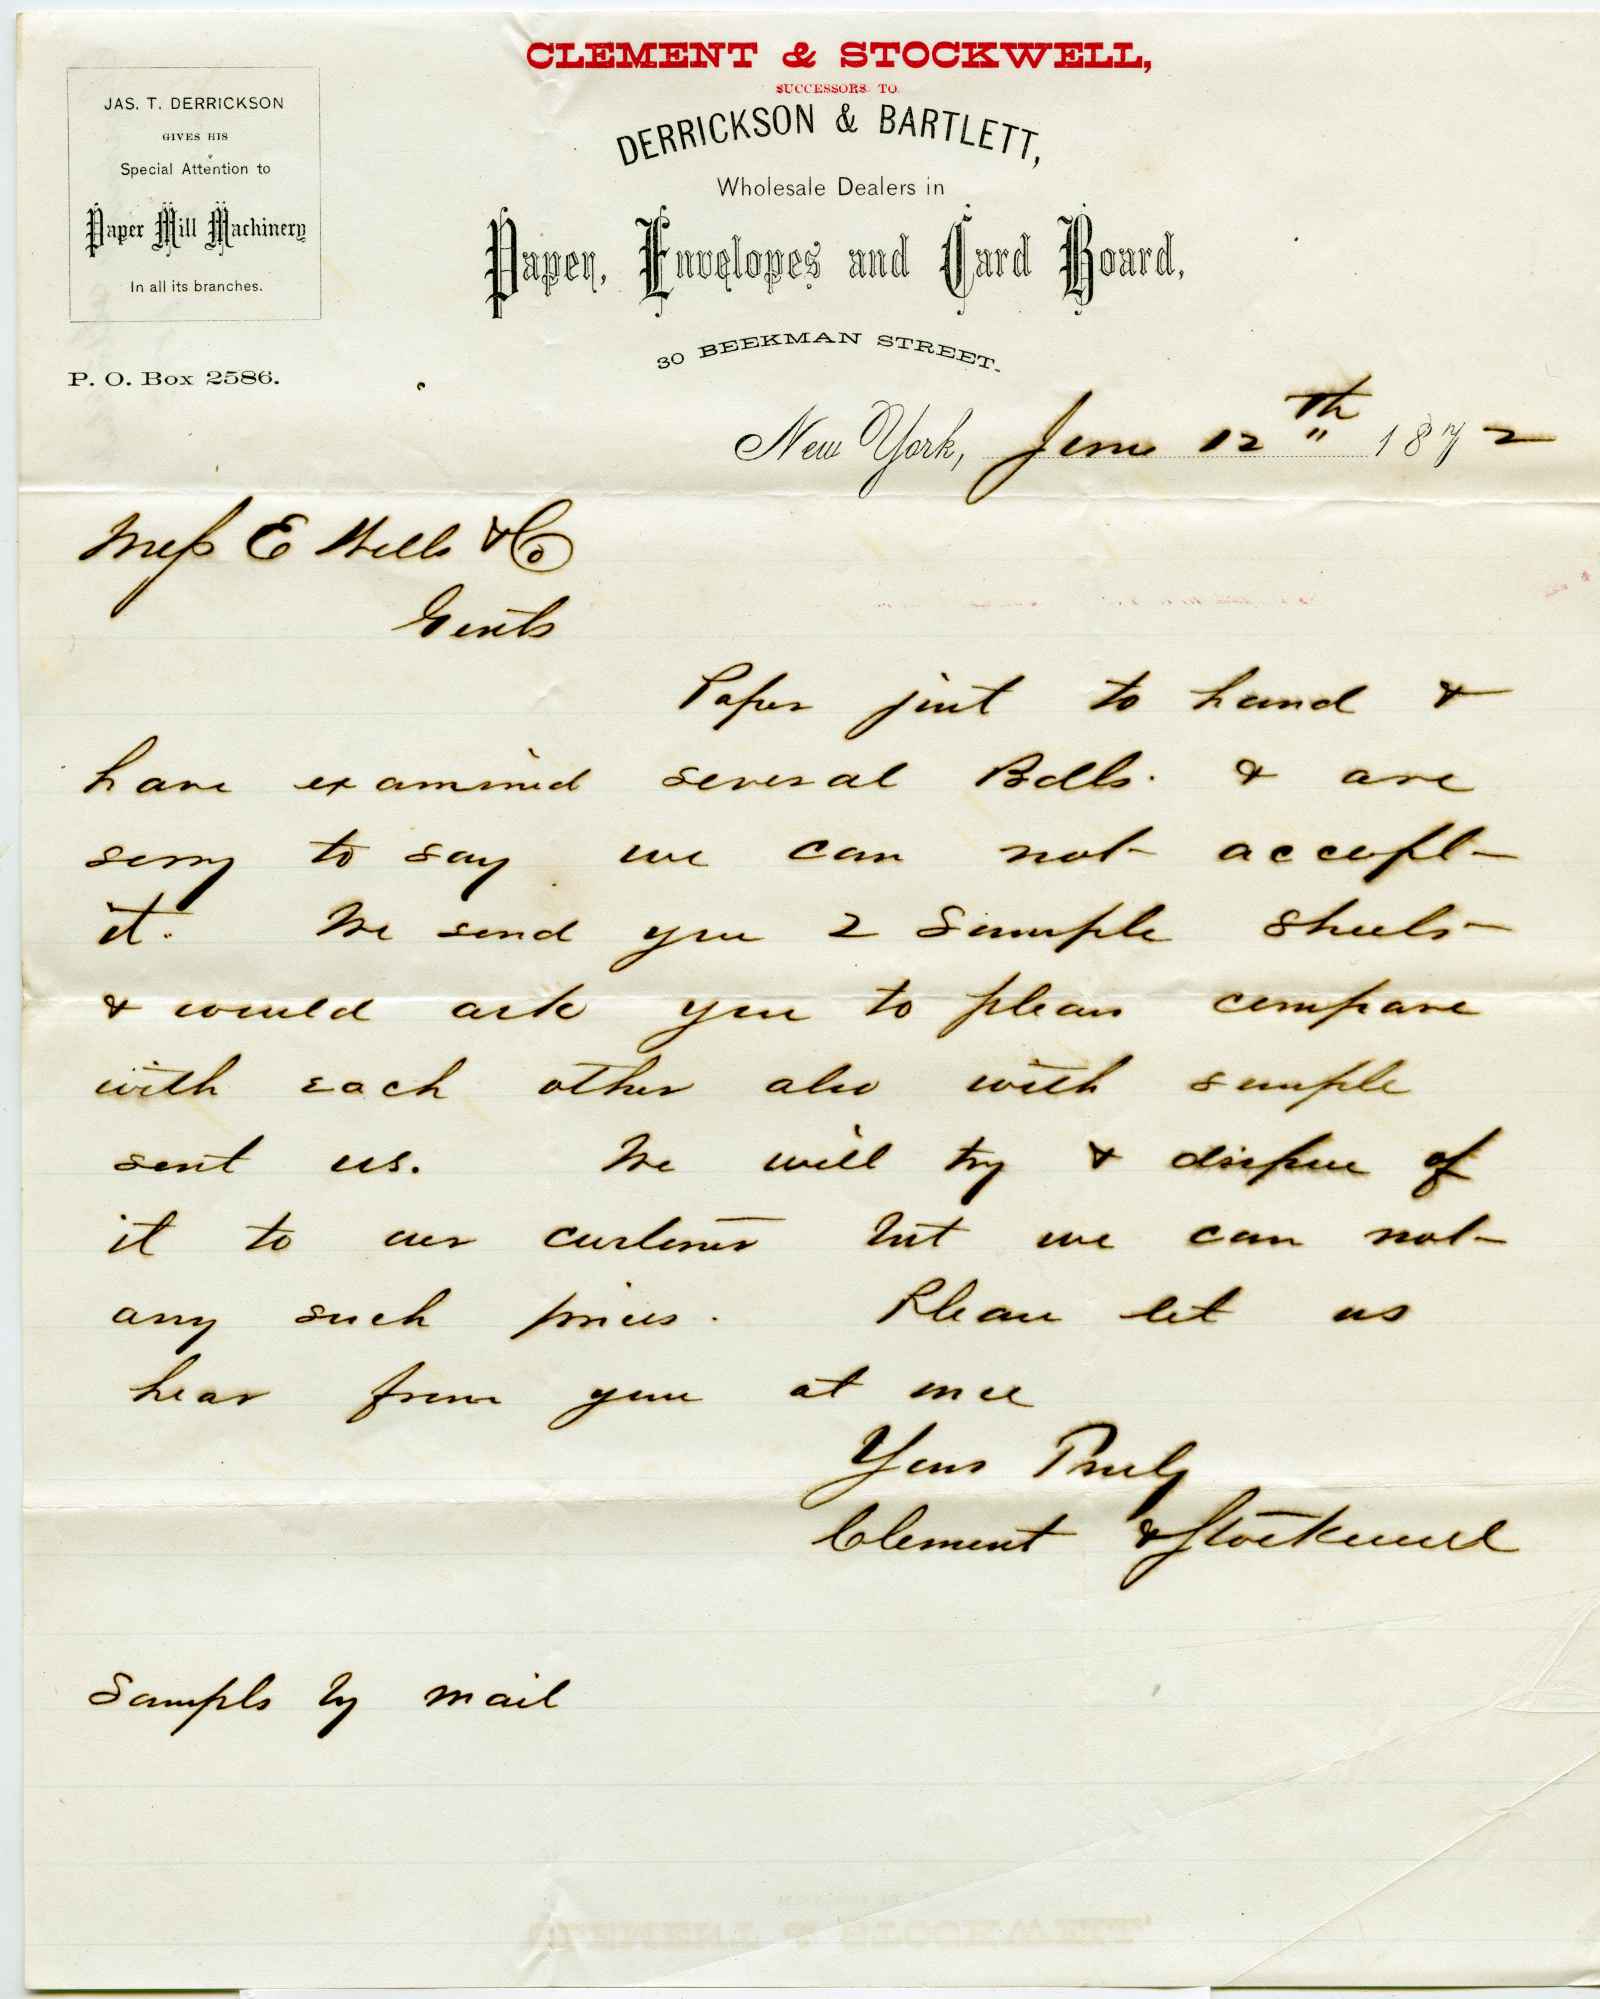 CLEMENT & STOCKWELL,
SUCCESSORS TO
DERRICKSON & BARTLETT,
Wholesale Dealers in
Paper, Envelopes and Card Board,
30 BEEKMAN STREET.
JAS. T. DERRICKSON
GIVES HIS
Special Attention to
Paper Mill Machinery
In all its branches.
P. O. Box 2586.
New York, June 12th 1872
Mess E Wells & Co
Gents
Paper just to hand &
have examined several Bdls. & are
sorry to say we can not accept
it. We send you 2 Sample Sheets
& would ask you to please compare
with each other also with sample
sent us. We will try & dispose of
it to our customers but we can not
any such prices. Please let us
hear from you at once
Yours Truly
Clement & Stockwell
Sampls by mail